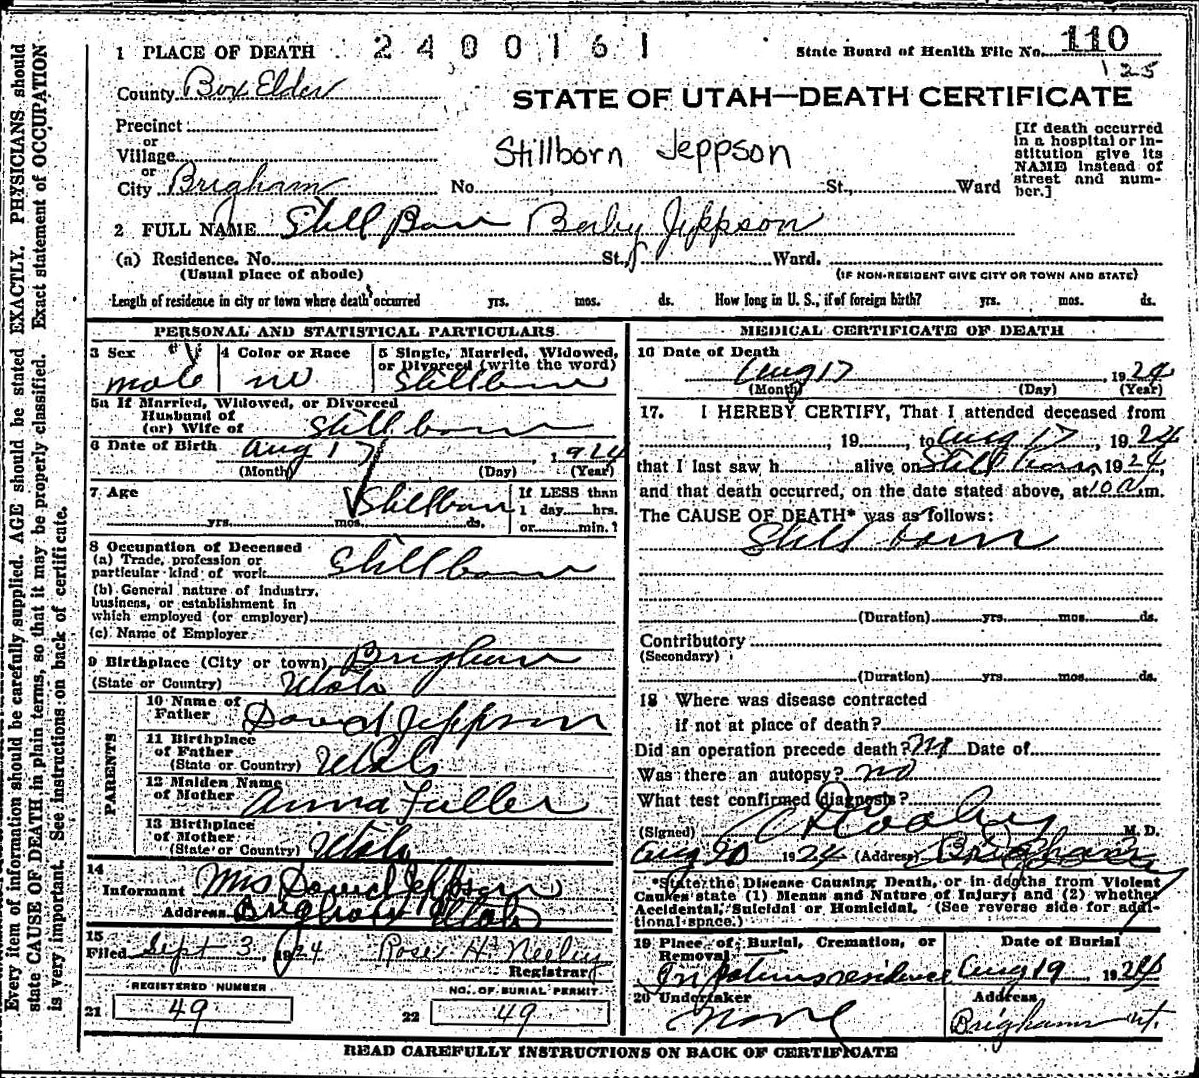 1 PLACE OF DEATH 2400161 State Board of Health File No. 110
125
County Box Elder
STATE OF UTAH—DEATH CERTIFICATE
Precinct
or
Village
or
City Brigham No. St., Ward
Stillborn Jeppson
[If death occurred
in a hospital or in-
stitution give its
NAME instead of
street and num-
ber.]
2 FULL NAME Still Born Baby Jeppson
(a) Residence. No. St., Ward.
(Usual place of abode) (IF NON-RESIDENT GIVE CITY OR TOWN AND STATE)
Length of residence in city or town where death occurred yrs. mos. ds. How long in U. S., if of foreign birth? yrs. mos. ds.
PERSONAL AND STATISTICAL PARTICULARS
3 Sex male
4 Color or Race W
5 Single, Married, Widowed,
or Divorced (write the word)
Stillborn
5a If Married, Widowed, or Divorced
Husband of
(or) Wife of Stillborn
6 Date of Birth Aug 17 1924
(Month) (Day) (Year)
7 Age Stillborn
yrs. mos. ds.
If LESS than
1 day hrs.
or min.?
8 Occupation of Deceased
(a) Trade, profession or
particular kind of work Stillborn
(b) General nature of industry,
business, or establishment in
which employed (or employer)
(c) Name of Employer
9 Birthplace (City or town) Brigham
(State or Country) Utah
PARENTS
10 Name of
Father David Jeppson
11 Birthplace
of Father
(State or Country) Utah
12 Maiden Name
of Mother Anna Fuller
13 Birthplace
of Mother
(State or Country) Utah
14
Informant Mrs David Jeppson
Address Brigham Utah
15
Filed Sept 3, 1924 Rose H.
Registrar
REGISTERED NUMBER
21 49
NO. OF BURIAL PERMIT
22 49
MEDICAL CERTIFICATE OF DEATH
16 Date of Death
Aug 17 1924
(Month) (Day) (Year)
17. I HEREBY CERTIFY, That I attended deceased from
, 19 , to Aug 17, 1924
that I last saw h alive on Still born, 1924,
and that death occurred, on the date stated above, at 10 a m.
The CAUSE OF DEATH* was as follows:
Still born
(Duration) yrs. mos. ds.
Contributory
(Secondary)
(Duration) yrs. mos. ds.
18 Where was disease contracted
if not at place of death?
Did an operation precede death? No Date of
Was there an autopsy? no
What test confirmed diagnosis?
(Signed) Cooley M. D.
Aug 20 1924 (Address) Brigham
*State the Disease Causing Death, or in deaths from Violent
Causes state (1) Means and Nature of Injury; and (2) whether
Accidental, Suicidal or Homicidal. (See reverse side for addi-
tional space.)
19 Place of Burial, Cremation, or
Removal
In residence
Date of Burial
Aug 19 1924
20 Undertaker
None
Address
Brigham ut.
READ CAREFULLY INSTRUCTIONS ON BACK OF CERTIFICATE
Every item of information should be carefully supplied. AGE should be stated EXACTLY. PHYSICIANS should
state CAUSE OF DEATH in plain terms, so that it may be properly classified. Exact statement of OCCUPATION
is very important. See instructions on back of certificate.